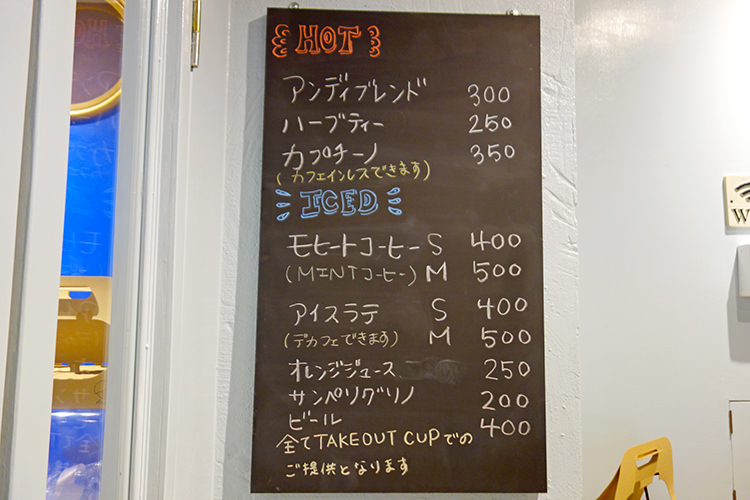 HOT
アンディブレンド 300
ハーブティー 250
カプチーノ 350
(カフェインレスできます)
ICED
モヒートコーヒー S 400
(MINTコーヒー) M 500
アイスラテ S 400
(デカフェできます) M 500
オレンジジュース 250
サンペリグリノ 200
ビール 400
全てTAKEOUT CUPでの
ご提供となります